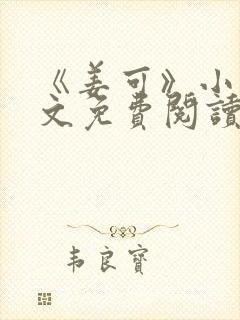 《姜可》小
文免費閱讀
韦良寶